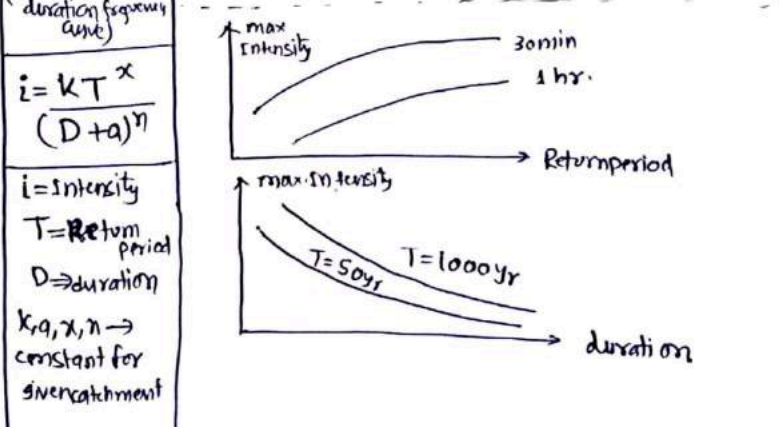 duration frequency
curve)
i = KT^x / (D+a)^n
i = Intensity
T = Return
period
D ⇒ duration
K,a,x,n →
constant for
given catchment
max
Intensity
30min
1 hr.
Return period
max. Intensity
T = 50yr
T = 1000yr
duration